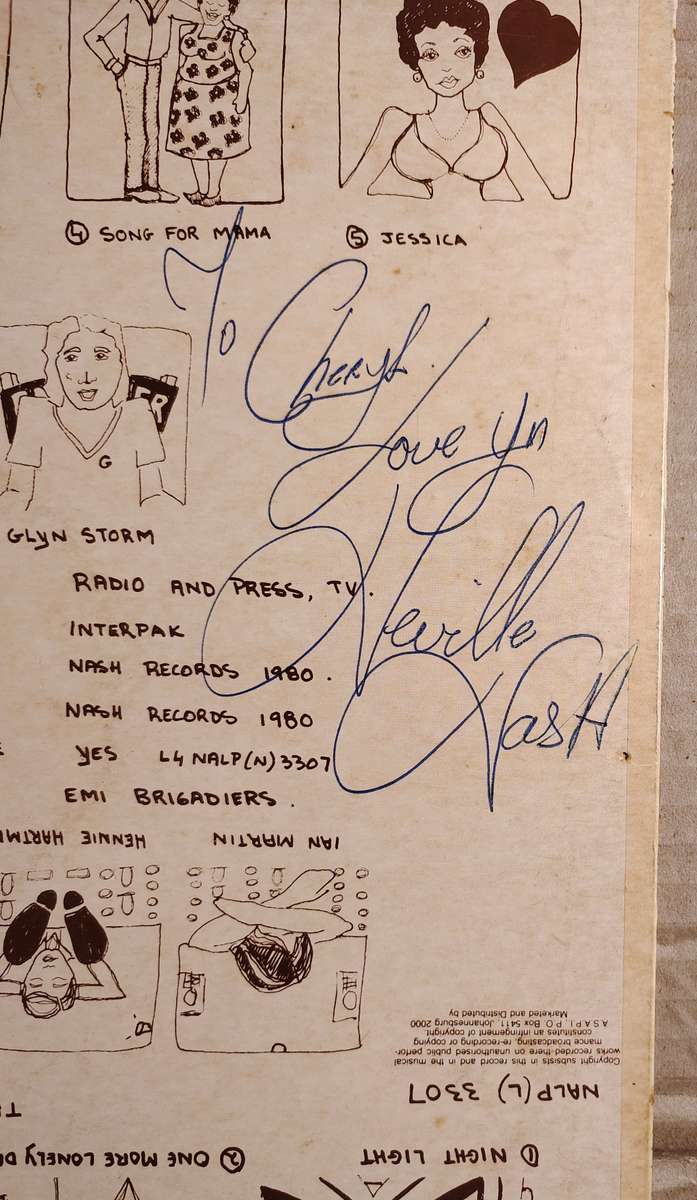 ④ SONG FOR MAMA
⑤ JESSICA
To Cheryl.
Love yn
Neville
Nash
ER
G
GLYN STORM
RADIO AND PRESS, TV.
INTERPAK
NASH RECORDS 1980.
NASH RECORDS 1980
YES L4 NALP(N)3307
EMI BRIGADIERS.
IAN MARTIN
HENNIE
Copyright subsists in this record and in the musical
works recorded-there on unauthorised public perfor-
mance broadcasting, re-recording or copying
constitutes an infringement of copyright
A.S.A.P.I., P.O. Box 5411, Johannesburg 2000
Marketed and Distributed by
NALP(L) 3307
① NIGHT LIGHT
② ONE MORE LONELY